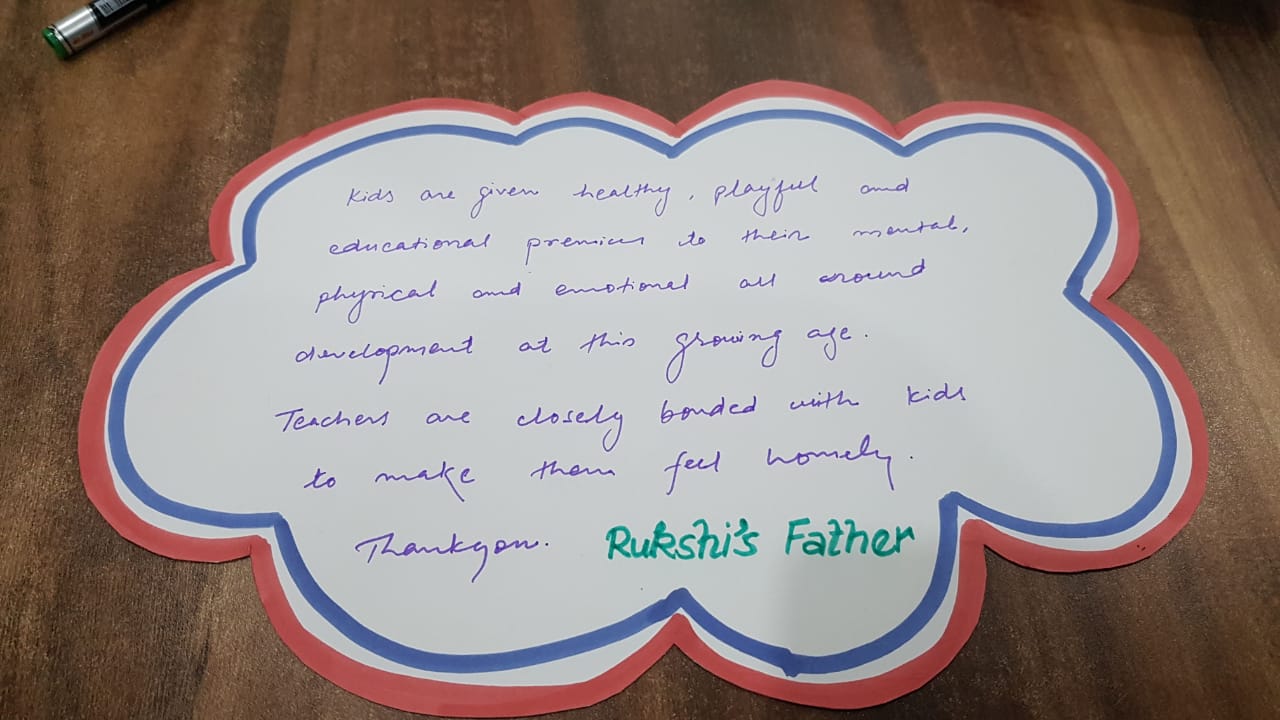 Kids are given healthy, playful and
educational premices to their mental,
physical and emotional all around
development at this growing age.
Teachers are closely bonded with kids
to make them feel homely.
Thankyou. Rukshi's Father